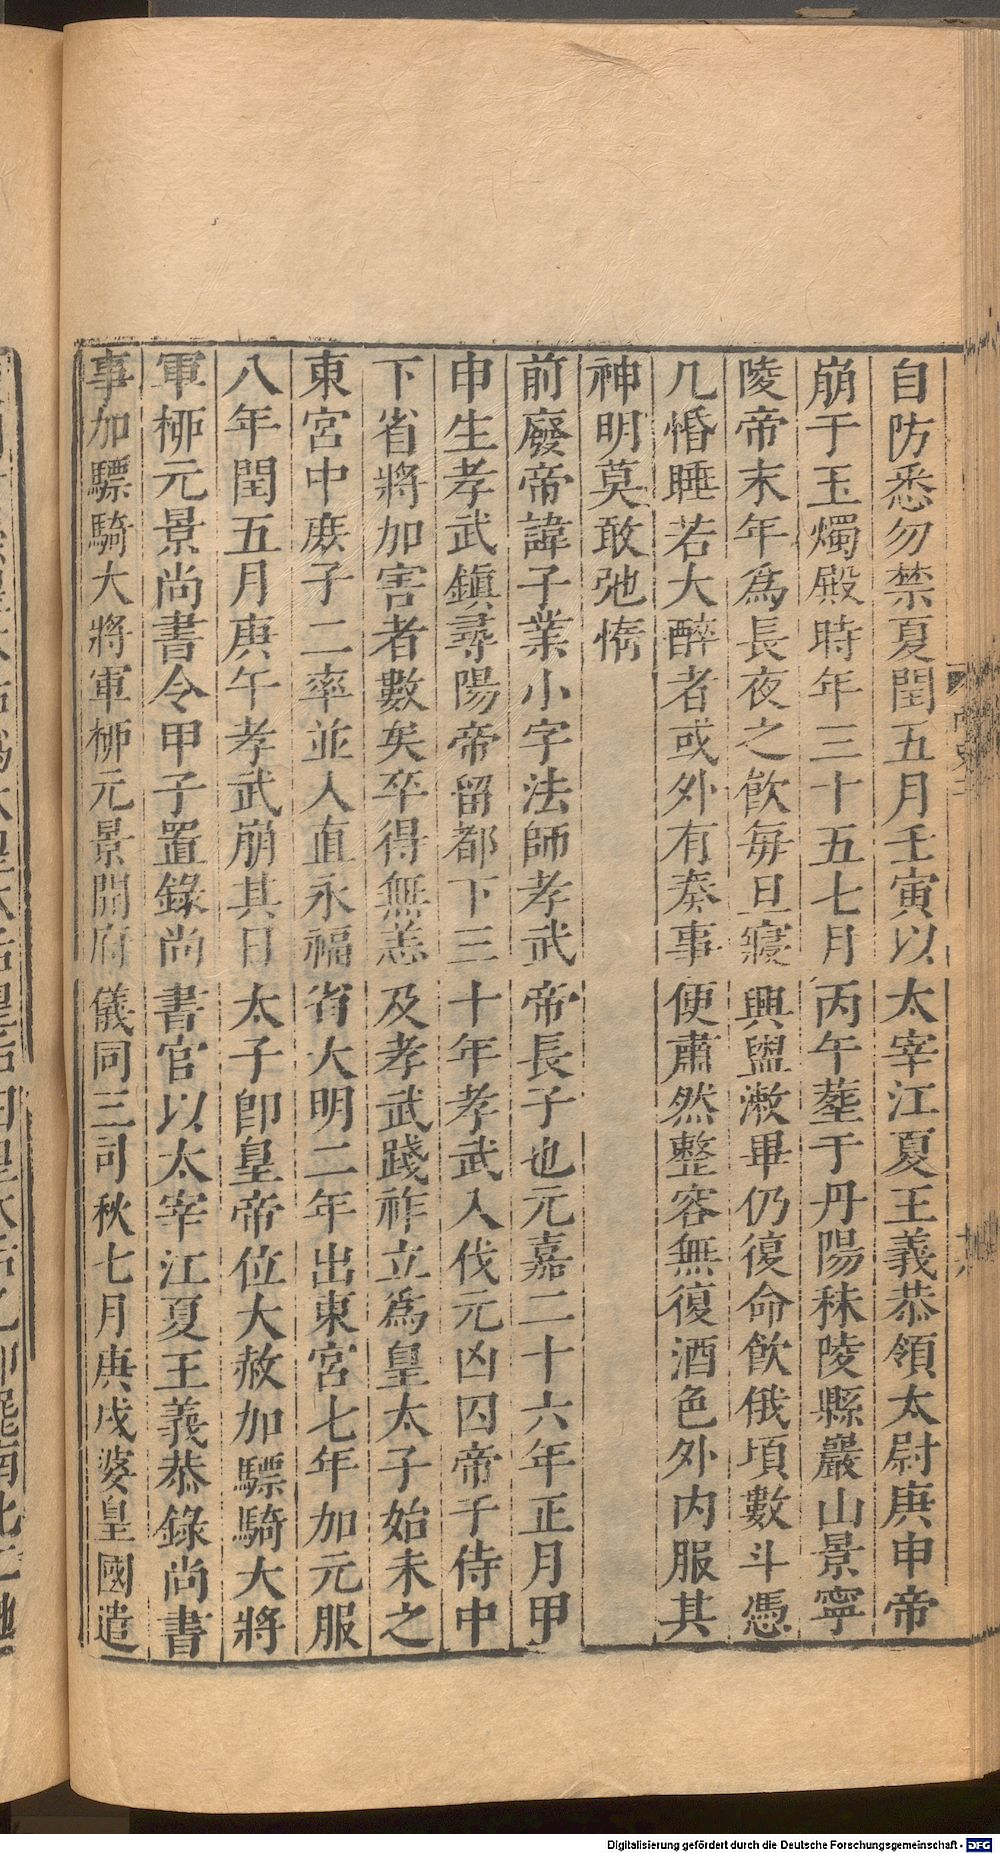 自防悉勿禁夏閏五月壬寅以太宰江夏王義恭領太尉庚申帝
崩于玉燭殿時年三十五七月丙午塟于丹陽秣陵縣巖山景寧
陵帝末年爲長夜之飲每旦寢興盥漱畢仍復命飲俄頃數斗憑
几惛睡若大醉者或外有奏事便肅然整容無復酒色外内服其
神明莫敢弛惰
前廢帝諱子業小字法師孝武帝長子也元嘉二十六年正月甲
申生孝武鎮尋陽帝留都下三十年孝武入伐元凶囚帝于侍中
下省將加害者數矣卒得無恙及孝武踐祚立爲皇太子始未之
東宮中庶子二率並入直永福省大明二年出東宮七年加元服
八年閏五月庚午孝武崩其日太子卽皇帝位大赦加驃騎大將
軍桞元景尚書令甲子置錄尚書官以太宰江夏王義恭錄尚書
事加驃騎大將軍桞元景開府儀同三司秋七月庚戌婆皇國遣
Digitalisierung gefördert durch die Deutsche Forschungsgemeinschaft - DFG